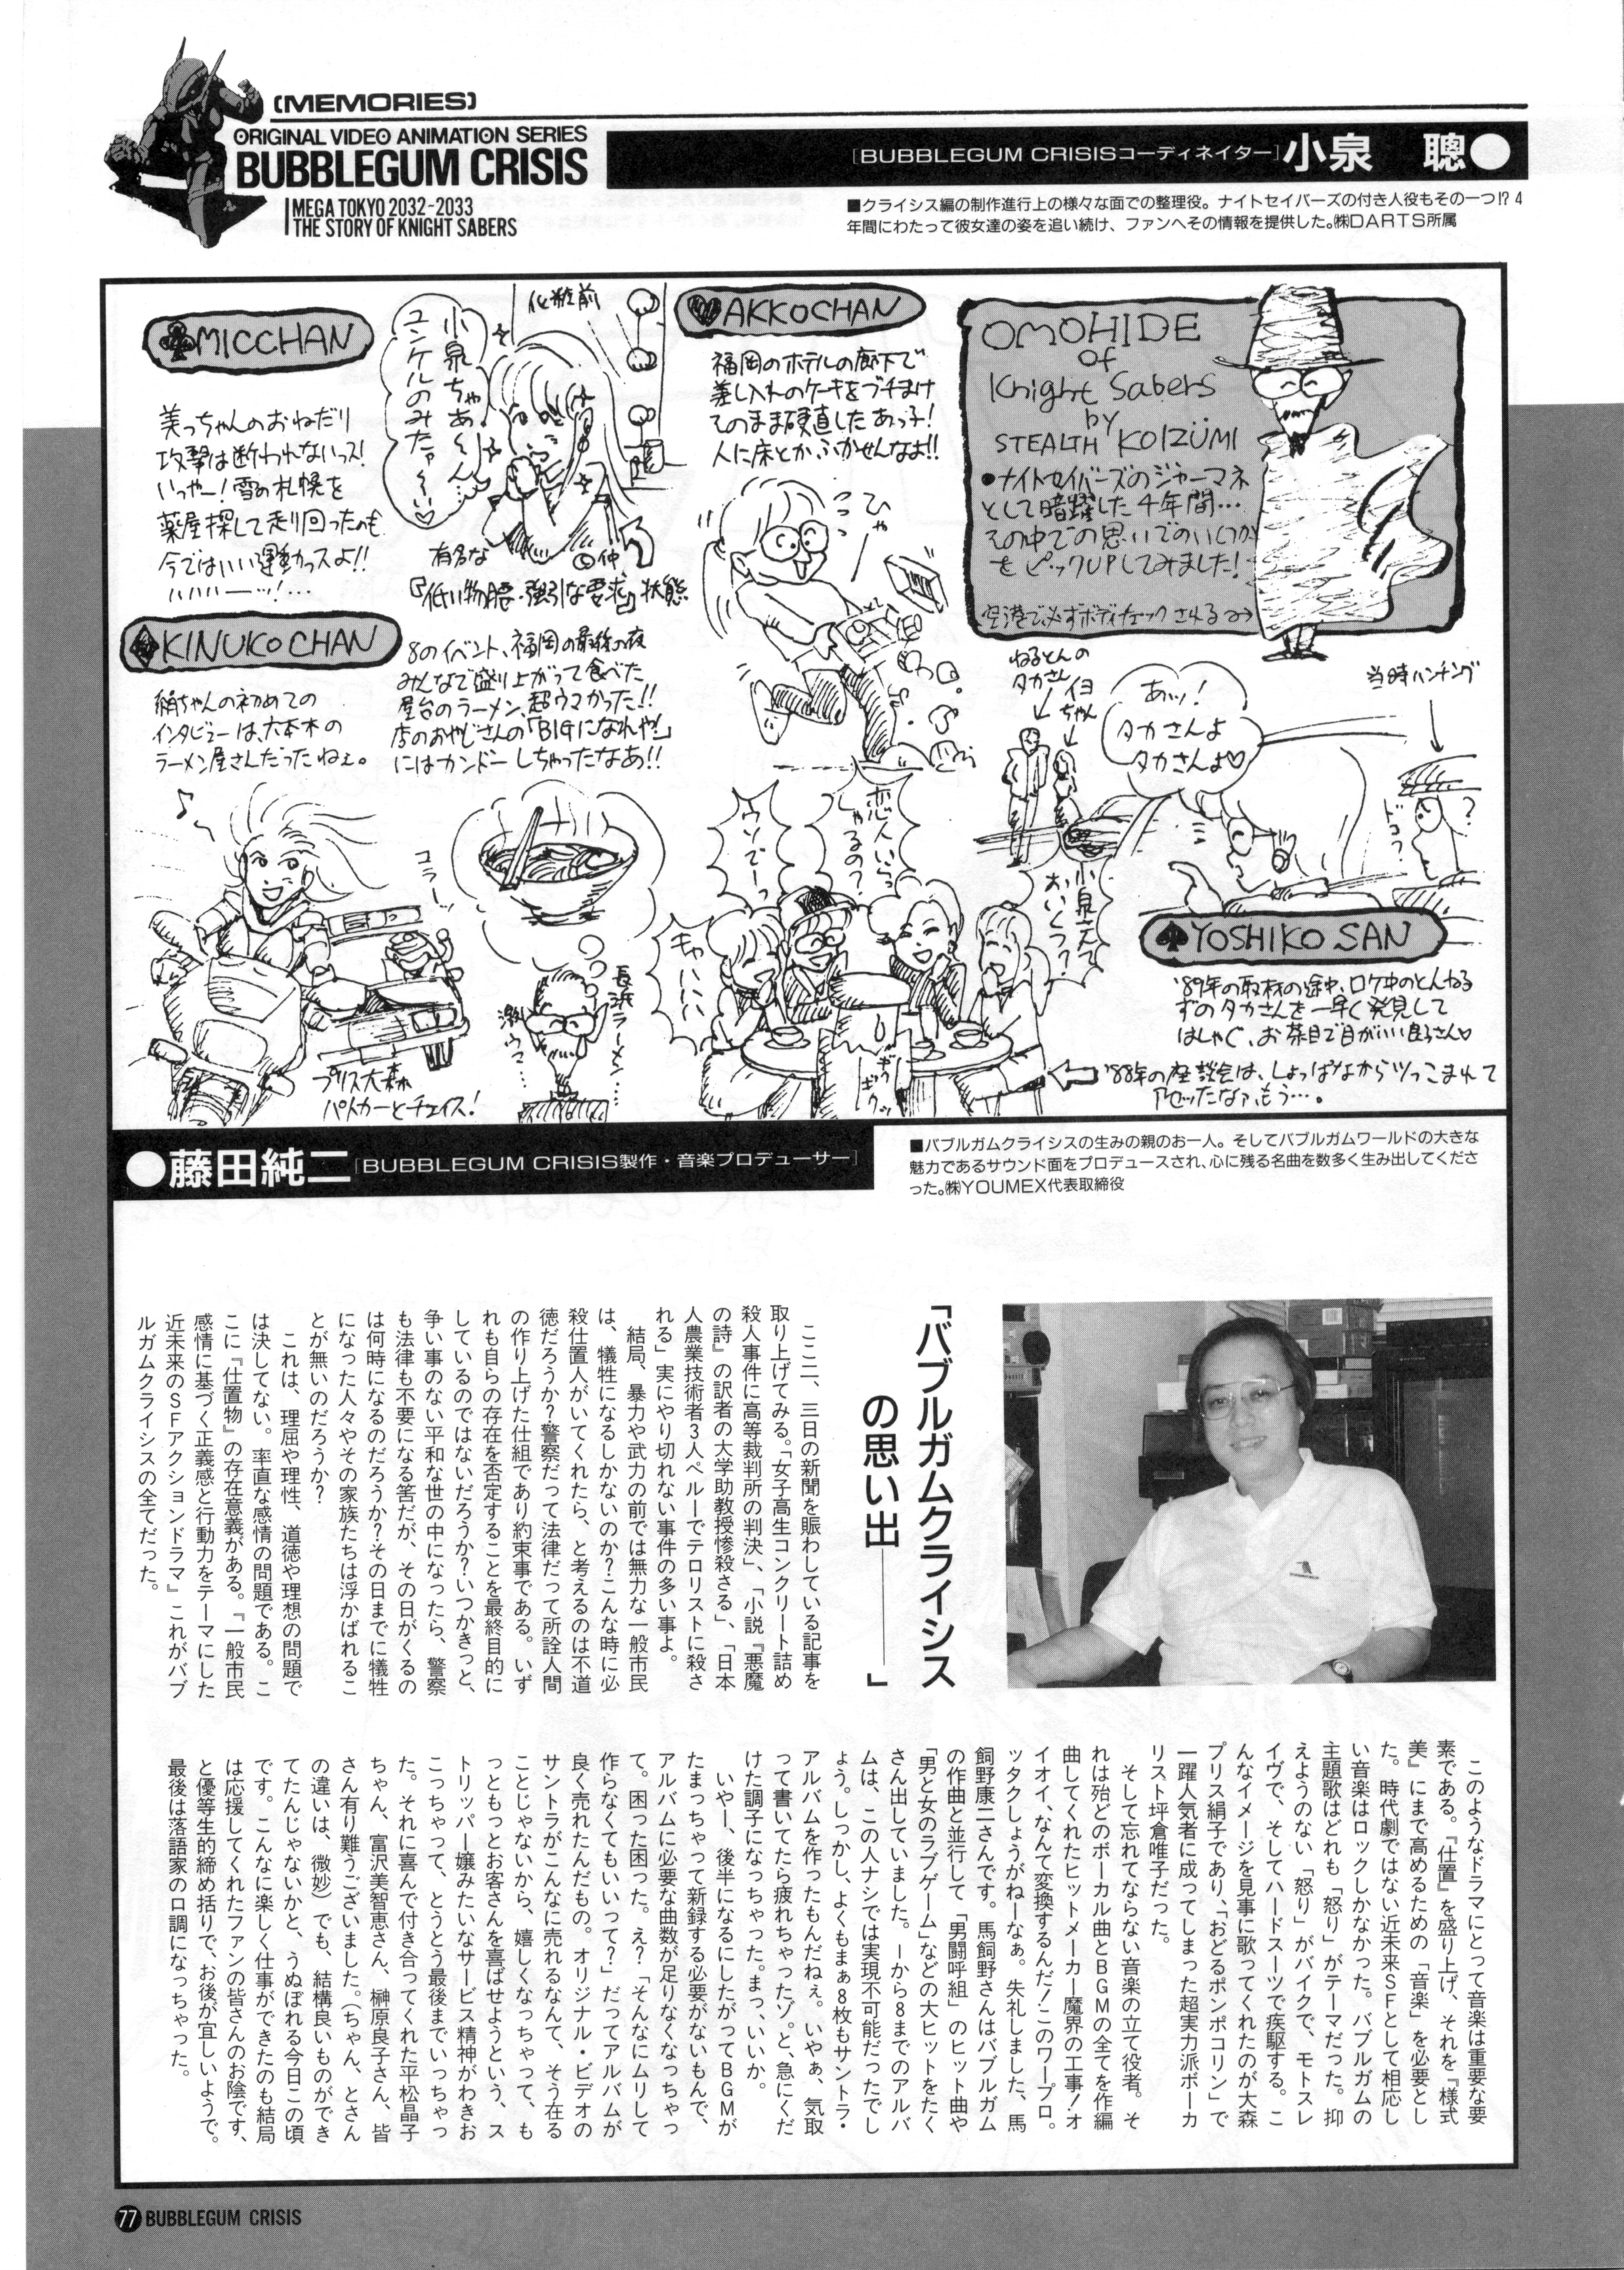 (MEMORIES)
ORIGINAL VIDEO ANIMATION SERIES
BUBBLEGUM CRISIS
MEGA TOKYO 2032-2033
THE STORY OF KNIGHT SABERS
[BUBBLEGUM CRISISコーディネイター]小泉 聰●
■クライシス編の制作進行上の様々な面での整理役。ナイトセイバーズの付き人役もその一つ!? 4
年間にわたって彼女達の姿を追い続け、ファンへその情報を提供した。㈱DARTS所属
♣MICCHAN
美っちゃんのおねだり
攻撃は断われないっス!
いっやー!雪の札幌を
薬屋探して走り回ったのも
今ではいい運動っスよ!!
ハハハーーッ!…
化粧前
小泉ちゃあ〜ん…
ユンケルのみたァ〜い♡
有名な
『低い物腰・強引な要求』状態
♥AKKOCHAN
福岡のホテルの廊下で
差し入れのケーキをブチまけ
そのまま硬直したあっ子!
人に床とかふかせんなよ!!
ひゃ
OMOHIDE
of
Knight Sabers
by
STEALTH KOIZUMI
●ナイトセイバーズのジャーマネ
として暗躍した4年間…
その中での思いでのいくつか
をピックUPしてみました!
空港で必ずボディチェックされる→
♦KINUKO CHAN
絹ちゃんの初めての
インタビューは、六本木の
ラーメン屋さんだったねぇ。
8のイベント、福岡の最後の夜
みんなで盛り上がって食べた
屋台のラーメン、超ウマかった!!
店のおやじさんの「BIGになれや!」
にはカンドーしちゃったなあ!!
♪
コラーッ
プリス大森
パトカーとチェイス!
長浜ラーメン…
激ウマ…
ねるとんの
タカさん
イヨ
ちゃん
あッ!
タカさんよ
タカさんよ♡
当時ハンチング
ドコっ?
?
恋人いらっ
しゃるの?
ウソでーっ
キャハハハ
小泉さんて
おいくつ?
♠YOSHIKO SAN
'89年の取材の途中、ロケ中のとんねる
ずのタカさんを一早く発見して
はしゃぐ、お茶目で目がいい良子さん♡
'88年の座談会は、しょっぱなからツッこまれて
アセったなァ、もう…。
●藤田純二[BUBBLEGUM CRISIS製作・音楽プロデューサー]
■バブルガムクライシスの生みの親のお一人。そしてバブルガムワールドの大きな
魅力であるサウンド面をプロデュースされ、心に残る名曲を数多く生み出してくださ
った。㈱YOUMEX代表取締役
「バブルガムクライシス
の思い出———」
ここ二、三日の新聞を賑わしている記事を
取り上げてみる。「女子高生コンクリート詰め
殺人事件に高等裁判所の判決」、「小説『悪魔
の詩』の訳者の大学助教授惨殺さる」、「日本
人農業技術者3人ペルーでテロリストに殺さ
れる」実にやり切れない事件の多い事よ。
結局、暴力や武力の前では無力な一般市民
は、犠牲になるしかないのか?こんな時に必
殺仕置人がいてくれたら、と考えるのは不道
徳だろうか?警察だって法律だって所詮人間
の作り上げた仕組であり約束事である。いず
れも自らの存在を否定することを最終目的に
しているのではないだろうか?いつかきっと、
争い事のない平和な世の中になったら、警察
も法律も不要になる筈だが、その日がくるの
は何時になるのだろうか?その日までに犠牲
になった人々やその家族たちは浮かばれるこ
とが無いのだろうか?
これは、理屈や理性、道徳や理想の問題で
は決してない。率直な感情の問題である。こ
こに『仕置物』の存在意義がある。『一般市民
感情に基づく正義感と行動力をテーマにした
近未来のSFアクションドラマ』これがバブ
ルガムクライシスの全てだった。
このようなドラマにとって音楽は重要な要
素である。『仕置』を盛り上げ、それを『様式
美』にまで高めるための「音楽」を必要とし
た。時代劇ではない近未来SFとして相応し
い音楽はロックしかなかった。バブルガムの
主題歌はどれも「怒り」がテーマだった。抑
えようのない「怒り」がバイクで、モトスレ
イヴで、そしてハードスーツで疾駆する。こ
んなイメージを見事に歌ってくれたのが大森
プリス絹子であり、「おどるポンポコリン」で
一躍人気者に成ってしまった超実力派ボーカ
リスト坪倉唯子だった。
そして忘れてならない音楽の立て役者。そ
れは殆どのボーカル曲とBGMの全てを作編
曲してくれたヒットメーカー魔界の工事!オ
イオイ、なんて変換するんだ!このワープロ。
ッタクしょうがねーなぁ。失礼しました、馬
飼野康二さんです。馬飼野さんはバブルガム
の作曲と並行して「男闘呼組」のヒット曲や
「男と女のラブゲーム」などの大ヒットをたく
さん出していました。1から8までのアルバ
ムは、この人ナシでは実現不可能だったでし
ょう。しっかし、よくもまぁ8枚もサントラ・
アルバムを作ったもんだねぇ。いやぁ、気取
って書いてたら疲れちゃったゾ。と、急にくだ
けた調子になっちゃった。まっ、いいか。
いやー、後半になるにしたがってBGMが
たまっちゃって新録する必要がないもんで、
アルバムに必要な曲数が足りなくなっちゃっ
て。困った困った。え?「そんなにムリして
作らなくてもいいって?」だってアルバムが
良く売れたんだもの。オリジナル・ビデオの
サントラがこんなに売れるなんて、そう在る
ことじゃないから、嬉しくなっちゃって、も
っともっとお客さんを喜ばせようという、ス
トリッパー嬢みたいなサービス精神がわきお
こっちゃって、とうとう最後までいっちゃっ
た。それに喜んで付き合ってくれた平松晶子
ちゃん、富沢美智恵さん、榊原良子さん、皆
さん有り難うございました。(ちゃん、とさん
の違いは、微妙)でも、結構良いものができ
てたんじゃないかと、うぬぼれる今日この頃
です。こんなに楽しく仕事ができたのも結局
は応援してくれたファンの皆さんのお陰です、
と優等生的締め括りで、お後が宜しいようで。
最後は落語家の口調になっちゃった。
77 BUBBLEGUM CRISIS